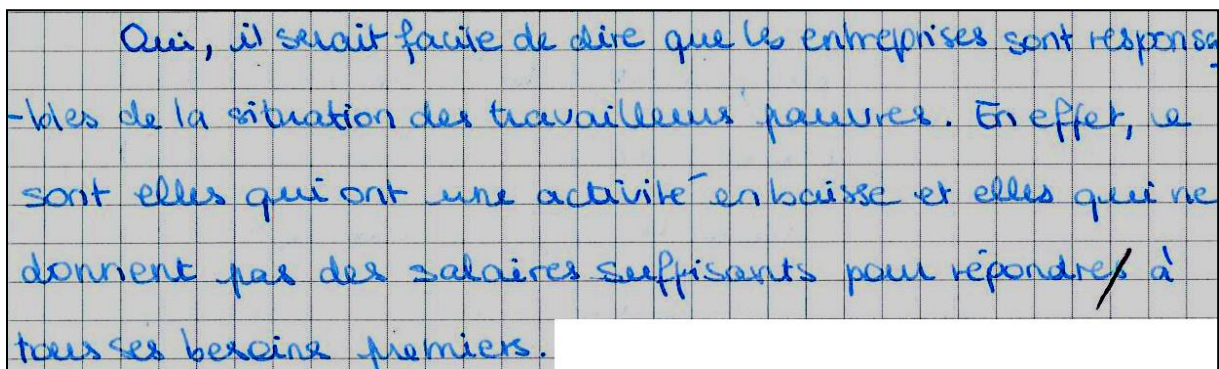 Oui, il serait facile de dire que les entreprises sont responsa
-bles de la situation des travailleurs pauvres. En effet, ce
sont elles qui ont une activité en baisse et elles qui ne
donnent pas des salaires suffisants pour répondres à
tous ses besoins premiers.